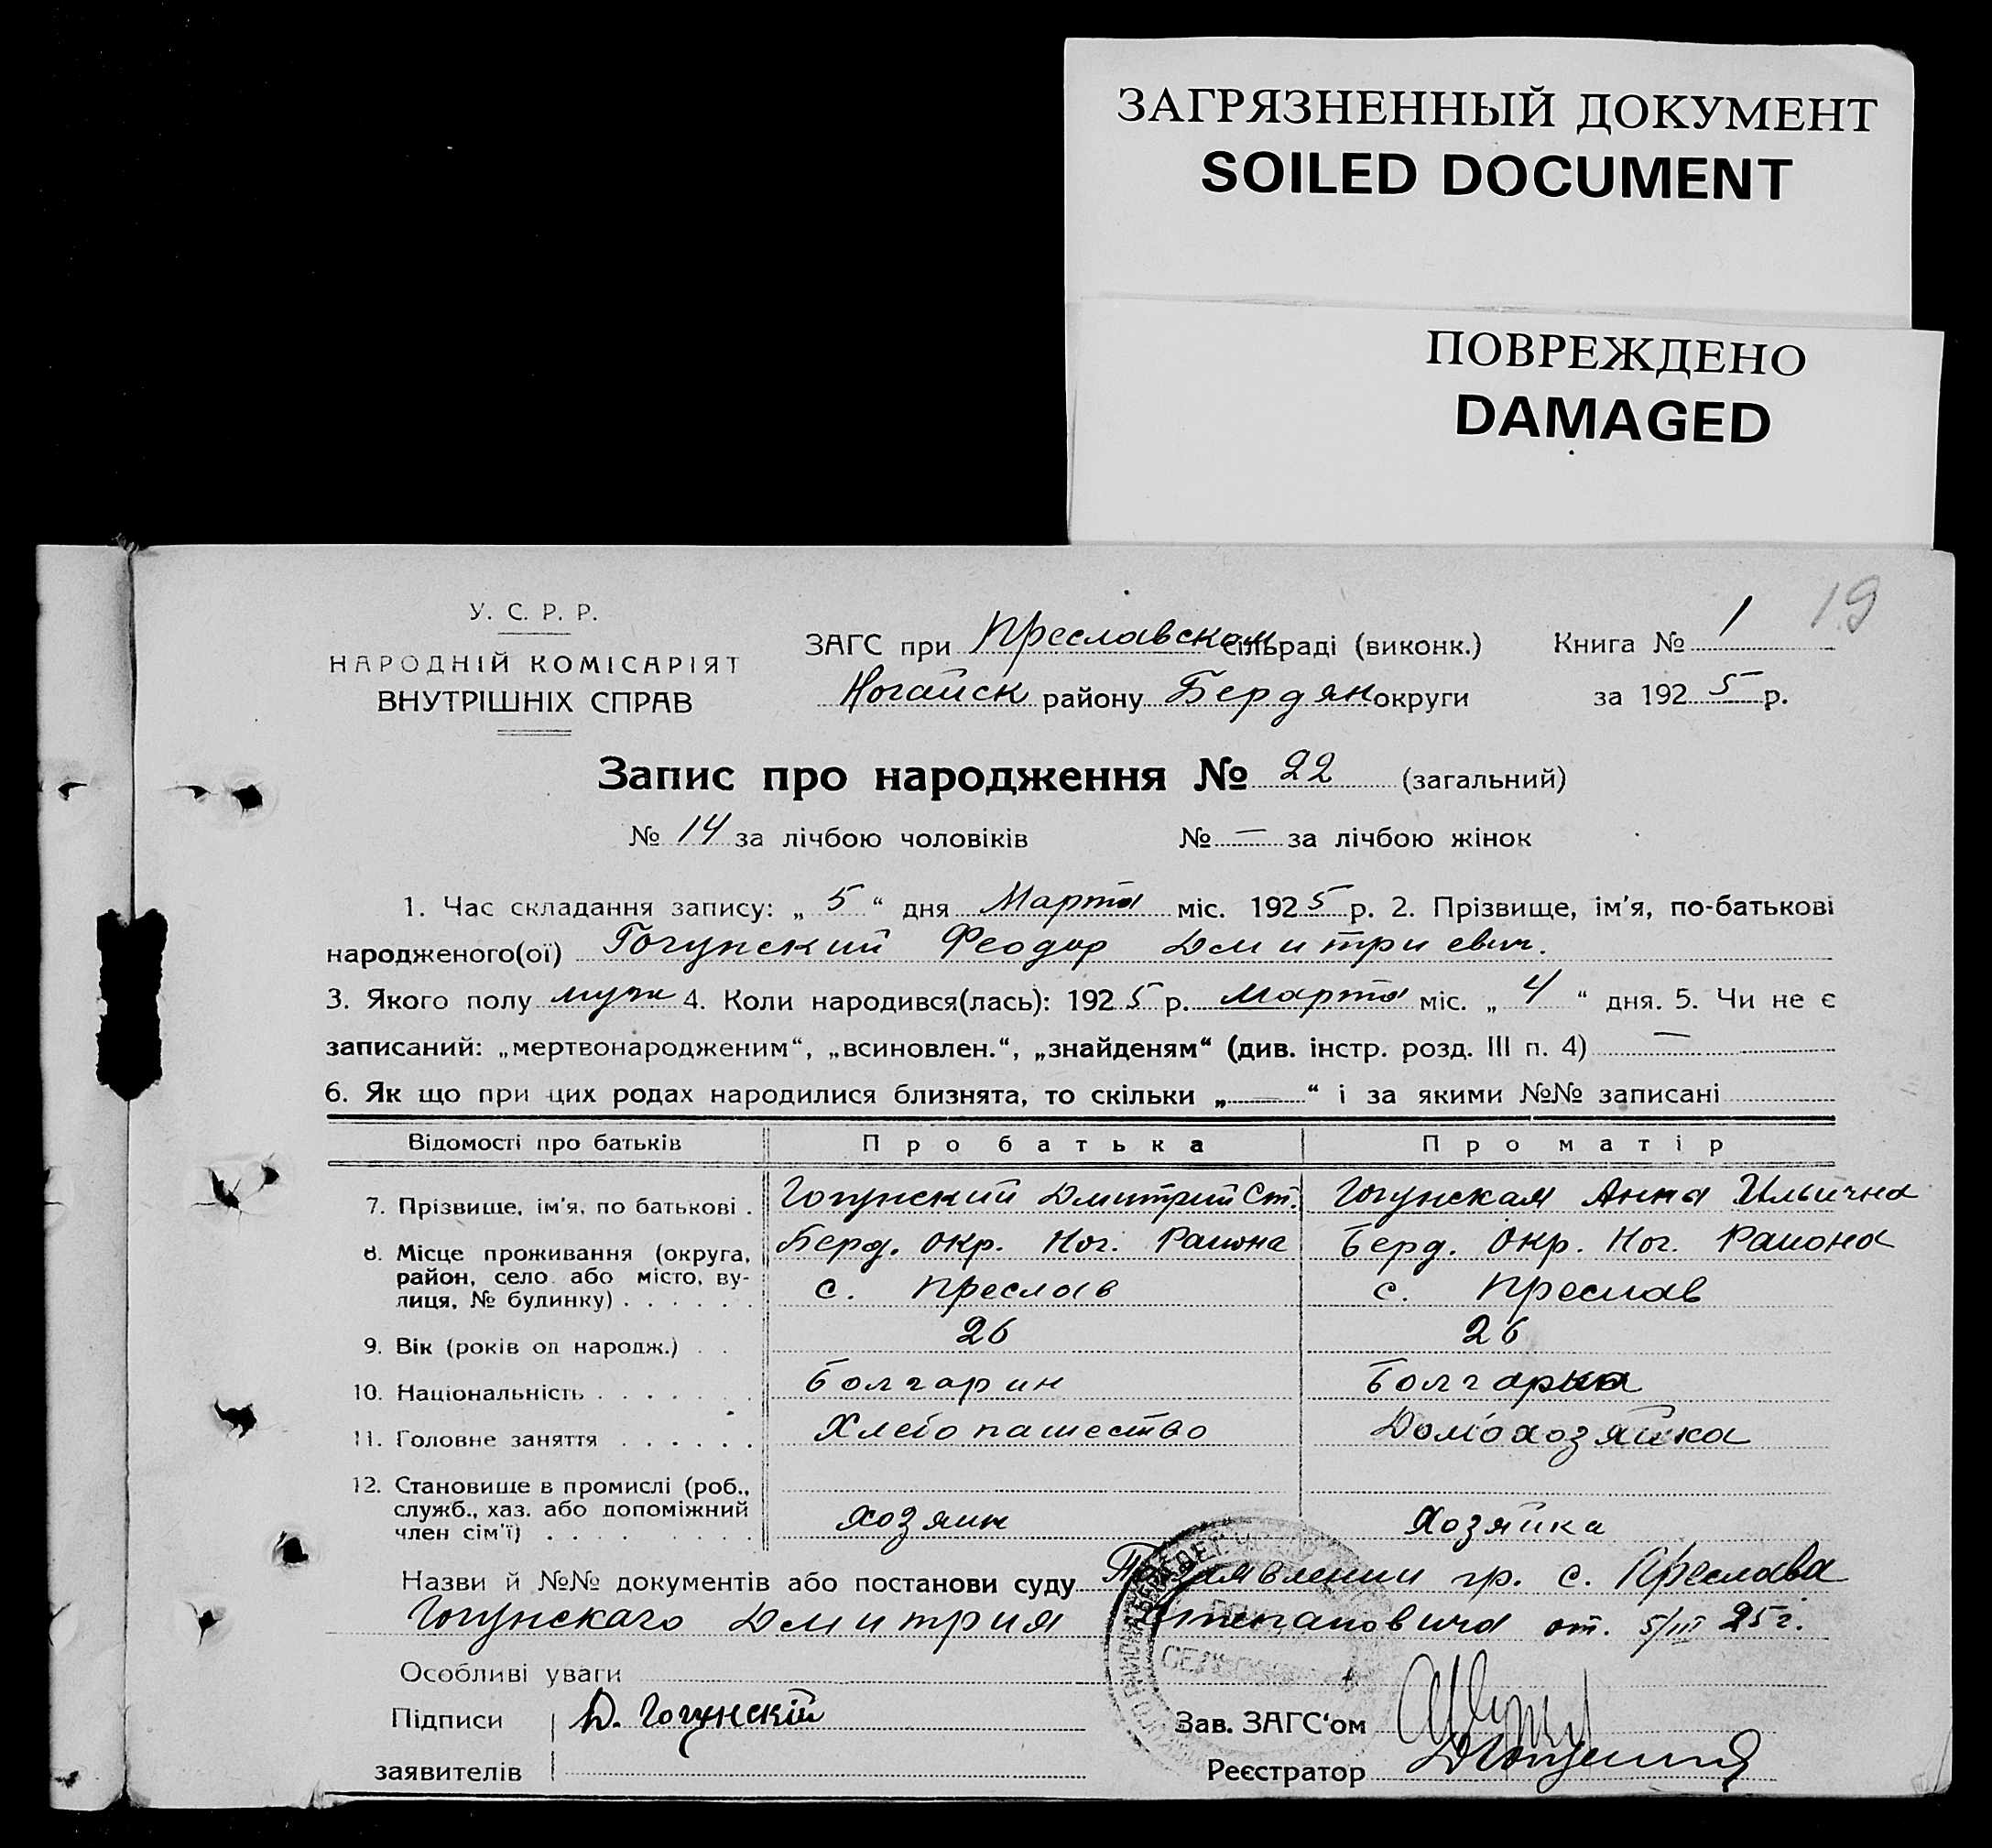 ЗАГРЯЗНЕННЫЙ ДОКУМЕНТ
SOILED DOCUMENT
ПОВРЕЖДЕНО
DAMAGED
19
У. С. Р. Р.
НАРОДНІЙ КОМІСАРІЯТ
ВНУТРІШНІХ СПРАВ
ЗАГС при Преславском сільраді (виконк.) Книга № 1
Ногайск району Бердян округи за 1925 р.
Запис про народження № 22 (загальний)
№ 14 за лічбою чоловіків № — за лічбою жінок
1. Час складання запису: „ 5 “ дня Марта міс. 1925 р. 2. Прізвище, ім'я, по-батькові
народженого(ої) Гогунский Феодор Дмитриевич.
3. Якого полу муж 4. Коли народився(лась): 1925 р. Марта міс. „ 4 “ дня. 5. Чи не є
записаний: „мертвонародженим“, „всиновлен.“, „знайденям“ (див. інстр. розд. III п. 4) —
6. Як що при цих родах народилися близнята, то скільки „ — “ і за якими №№ записані
Відомості про батьків Про батька Про матір
7. Прізвище, ім'я, по батькові . Гогунский Дмитрий Ст. Гогунская Анна Ильична
8. Місце проживання (округа, Берд. Окр. Ног. Района Берд. Окр. Ног. Района
район, село або місто, ву-
лиця, № будинку) . . . . . . с. Преслав с. Преслав
9. Вік (років од народж.) . . 26 26
10. Національність . . . . . . Болгарин Болгарка
11. Головне заняття . . . . . . Хлебопашество Домохозяйка
12. Становище в промислі (роб.,
служб., хаз. або допоміжний
член сім'ї) . . . . . . . хозяин хозяйка
Назви й №№ документів або постанови суду По заявлении гр. с. Преслава
Гогунскаго Дмитрия Степановича от. 5/III 25 г.
Особливі уваги
Підписи Д. Гогунскій Зав. ЗАГС'ом
заявителів Реєстратор